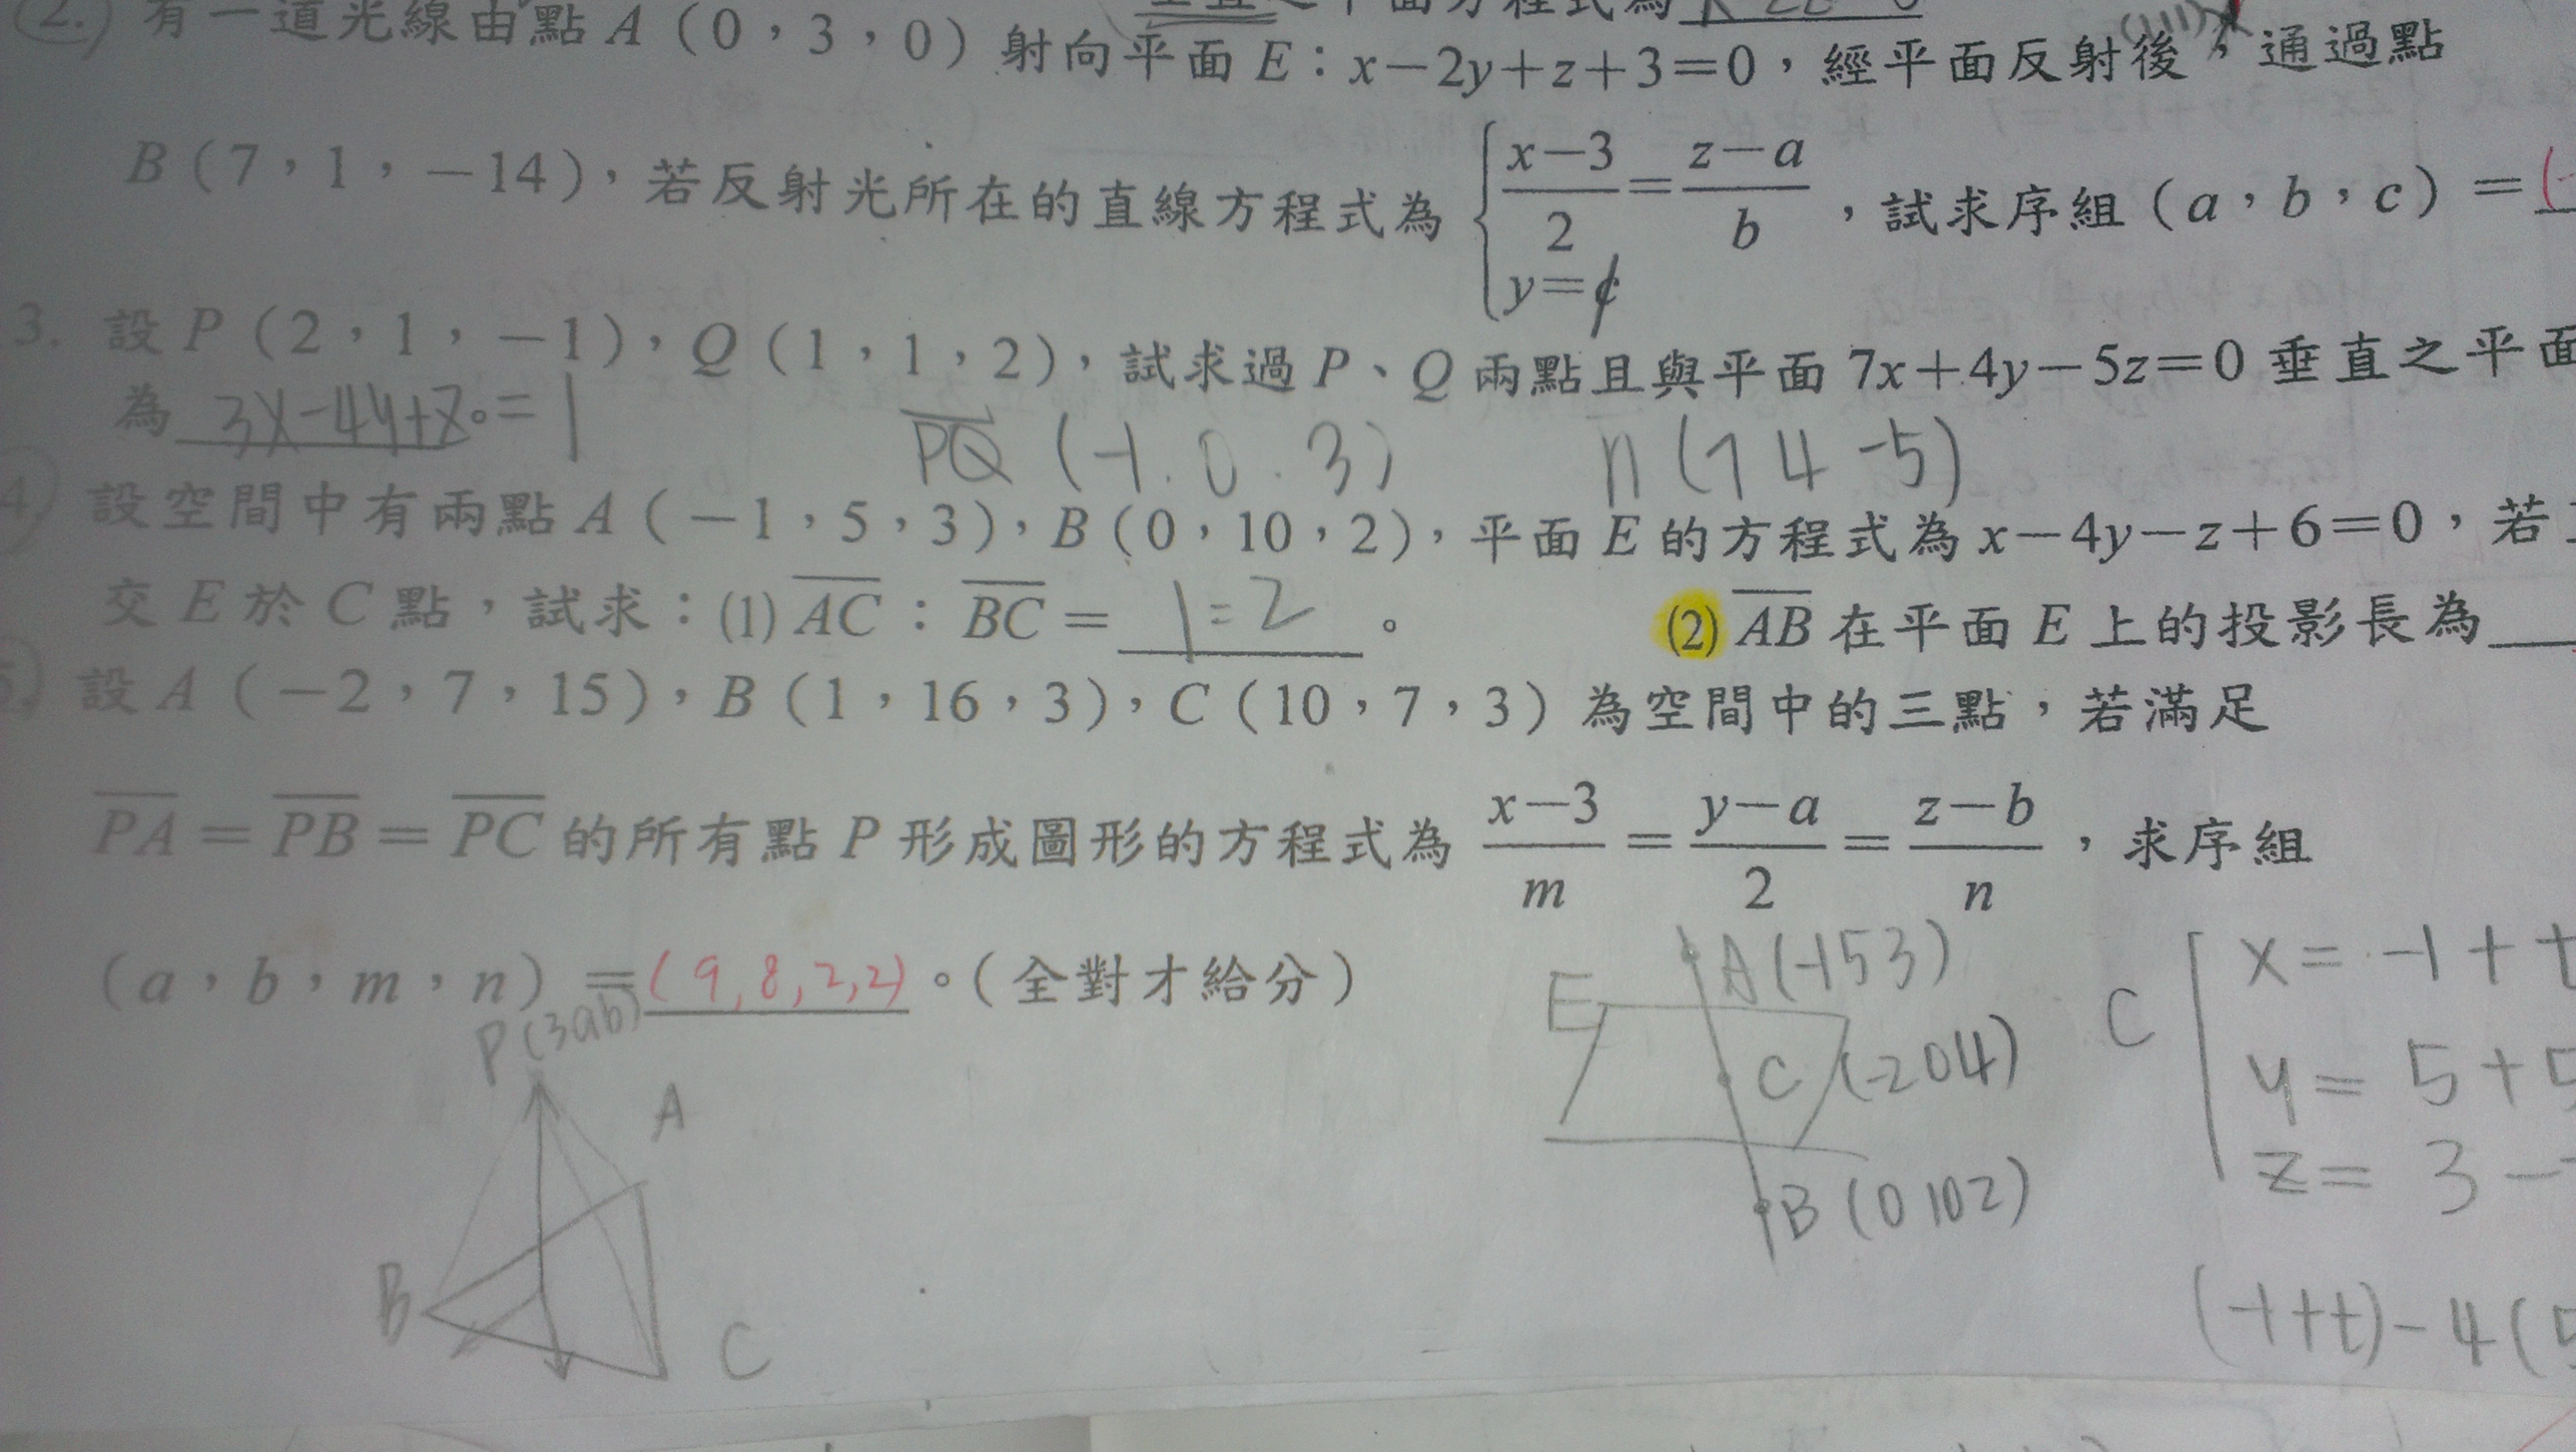 2. 有一道光線由點 A(0,3,0)射向平面 E:x-2y+z+3=0,經平面反射後,通過點
B(7,1,-14),若反射光所在的直線方程式為 { (x-3)/2 = (z-a)/b , y=c ,試求序組(a,b,c)=
3. 設 P(2,1,-1),Q(1,1,2),試求過 P、Q 兩點且與平面 7x+4y-5z=0 垂直之平面
為 3x-4y+z=1 。
PQ (-1.0.3) n(7 4 -5)
4) 設空間中有兩點 A(-1,5,3),B(0,10,2),平面 E 的方程式為 x-4y-z+6=0,若
交 E 於 C 點,試求:(1) AC:BC= 1=2 。 (2) AB 在平面 E 上的投影長為
5. 設 A(-2,7,15),B(1,16,3),C(10,7,3)為空間中的三點,若滿足
PA=PB=PC 的所有點 P 形成圖形的方程式為 (x-3)/m = (y-a)/2 = (z-b)/n ,求序組
(a,b,m,n)=(9,8,2,2)。(全對才給分)
P(3ab)
A
B
C
E
A(-153)
C (-204)
B(0102)
C
x= -1+t
y= 5+5
z= 3-
(-1+t)-4(5